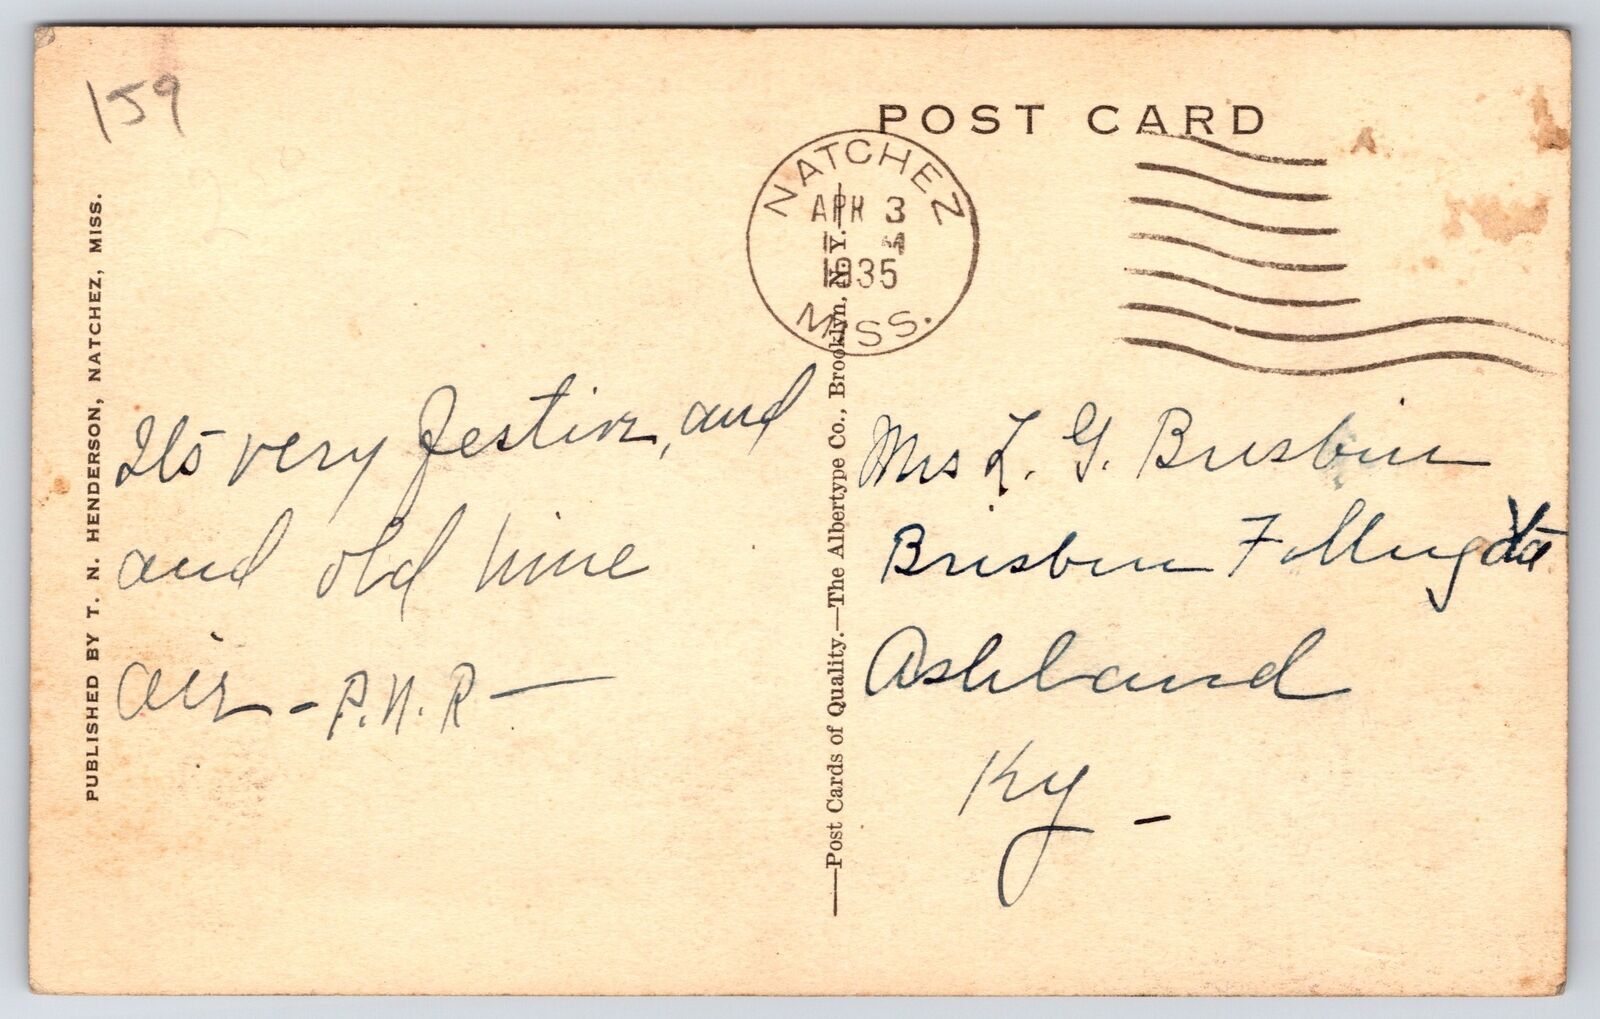 159
POST CARD
NATCHEZ
APR 3
1935
MISS.
PUBLISHED BY T. N. HENDERSON, NATCHEZ, MISS.
—Post Cards of Quality.—The Albertype Co., Brooklyn, N. Y.—
Its very festive, and
and old time
air - P.N.R -
Mrs L. G. Brisbin
Brisbin
Ashland
Ky -